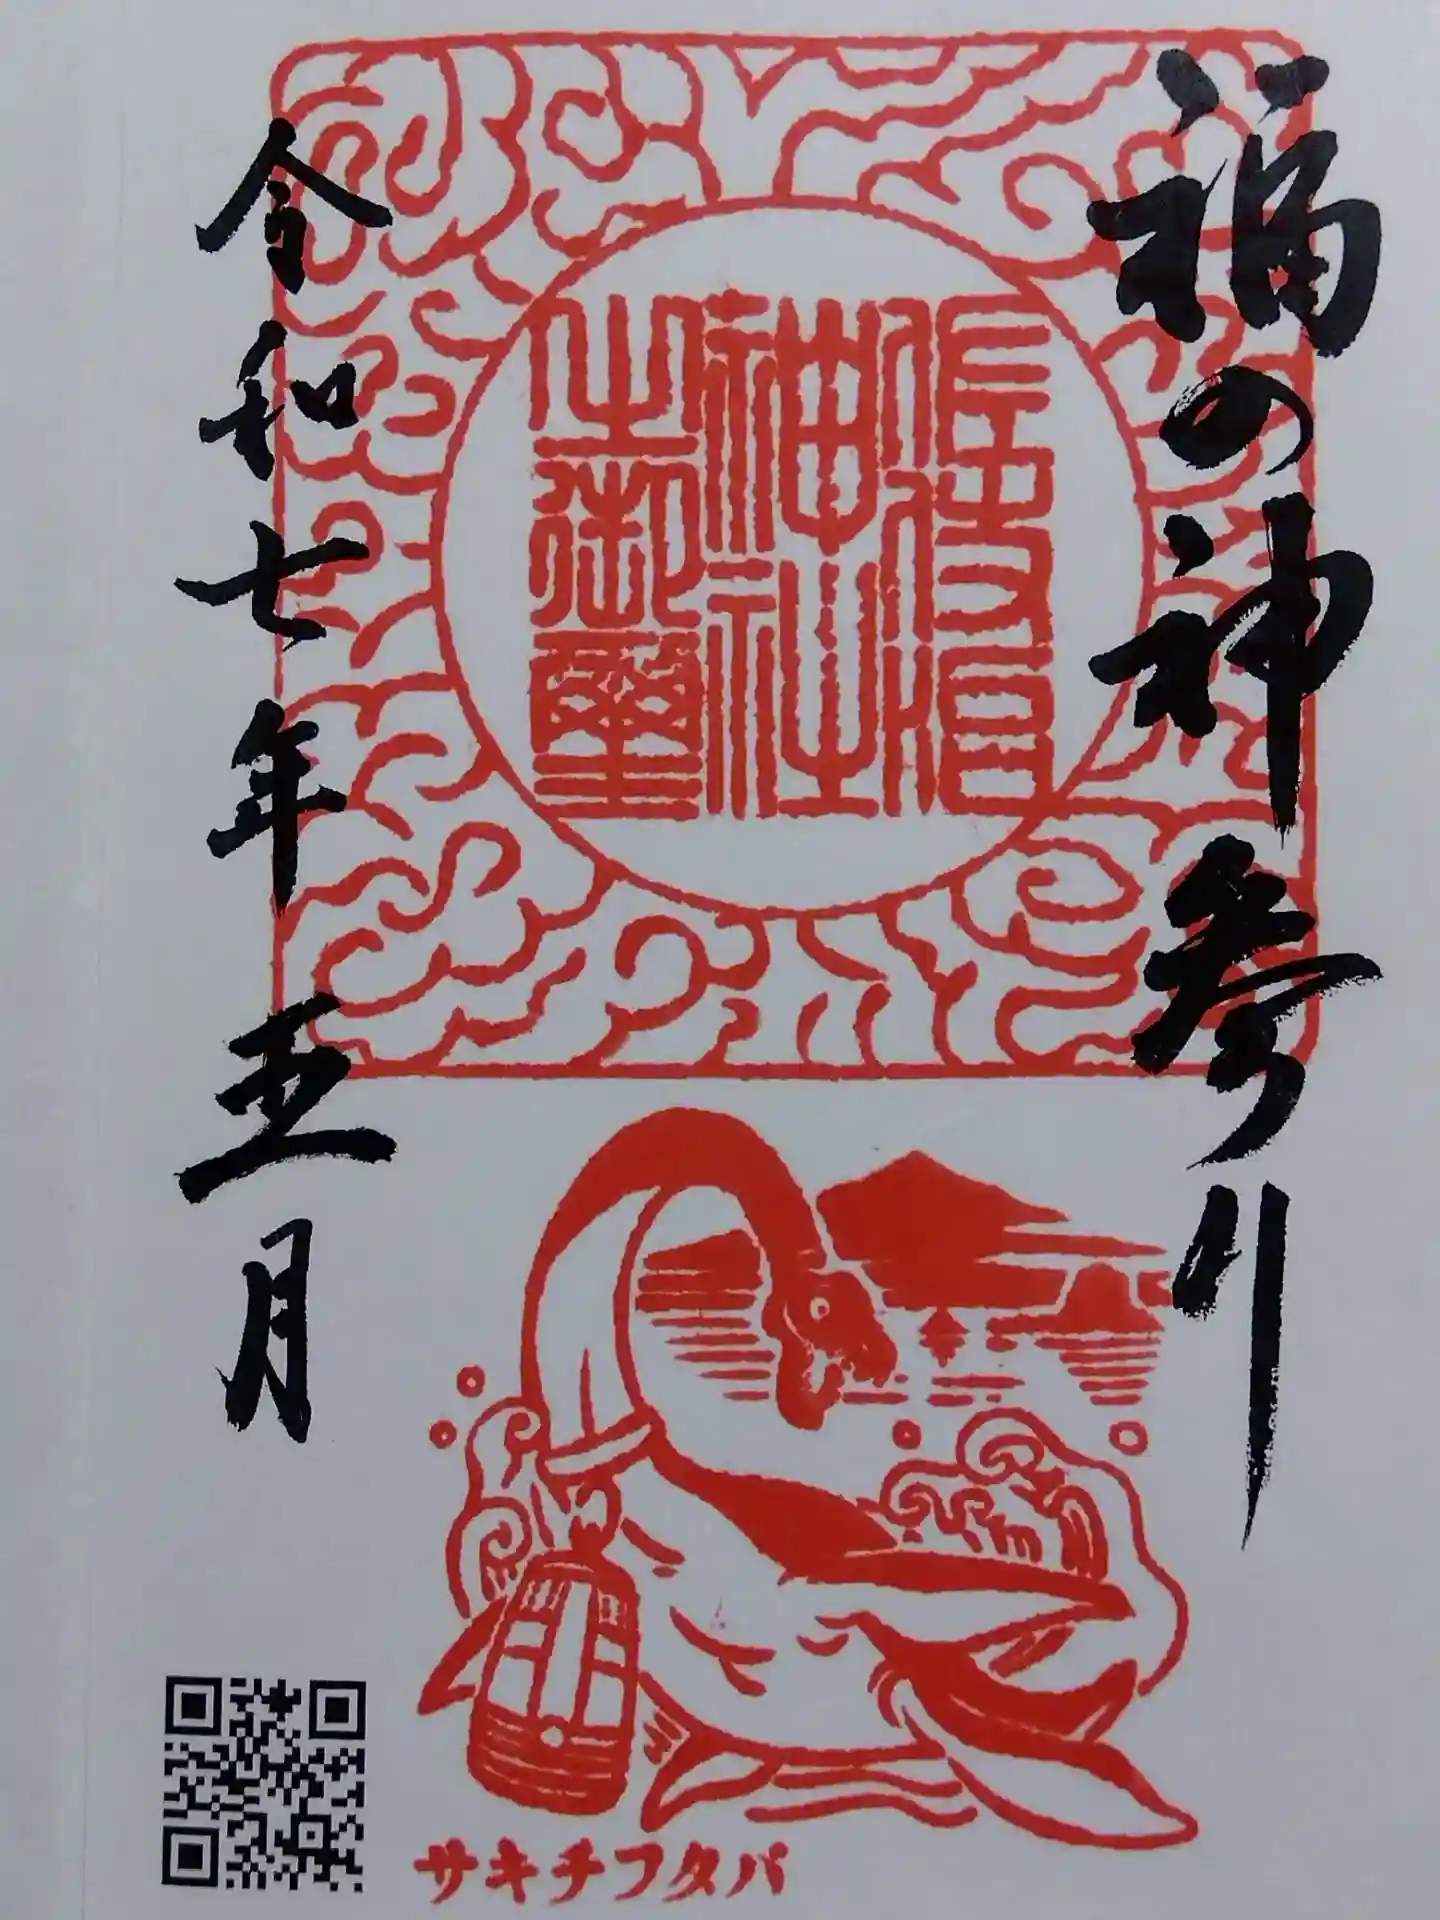 福の神参り
神社
之御璽
令和七年五月
サキチフタバ